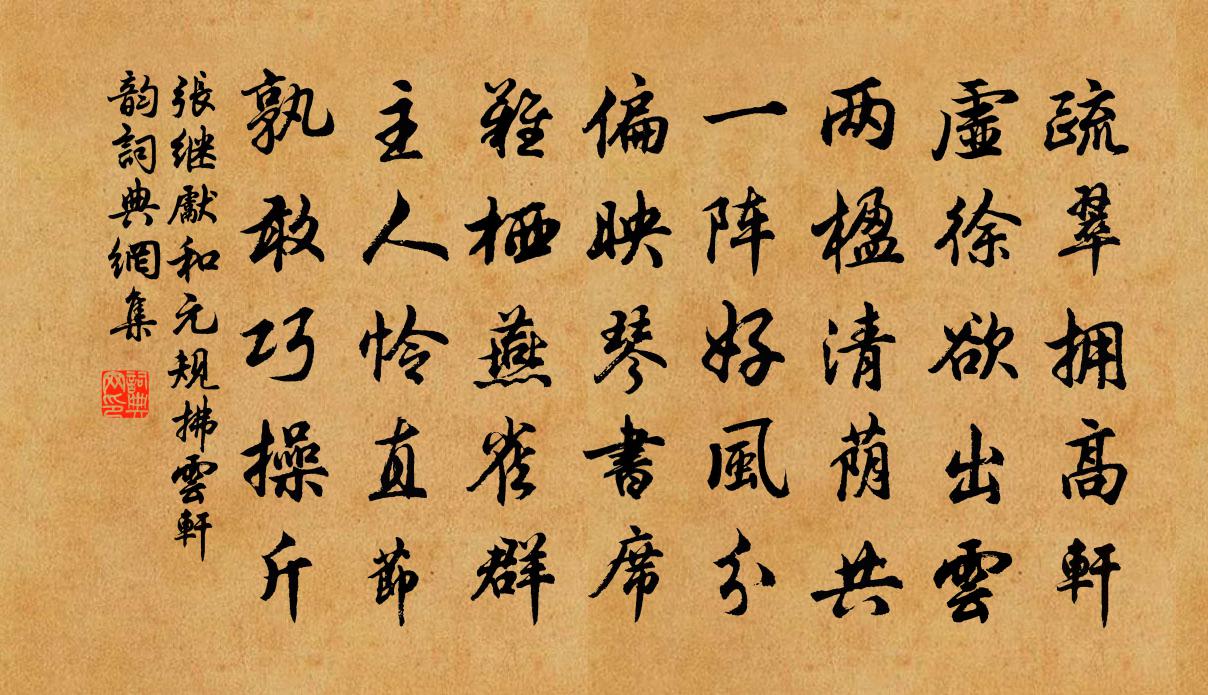 疏翠拥高軒
虛徐欲出雲
两楹清荫共
一阵好風分
偏映琴書席
難栖燕雀群
主人怜直節
孰敢巧操斤
張继獻和元規拂雲軒
韵詞典網集
詞典网印